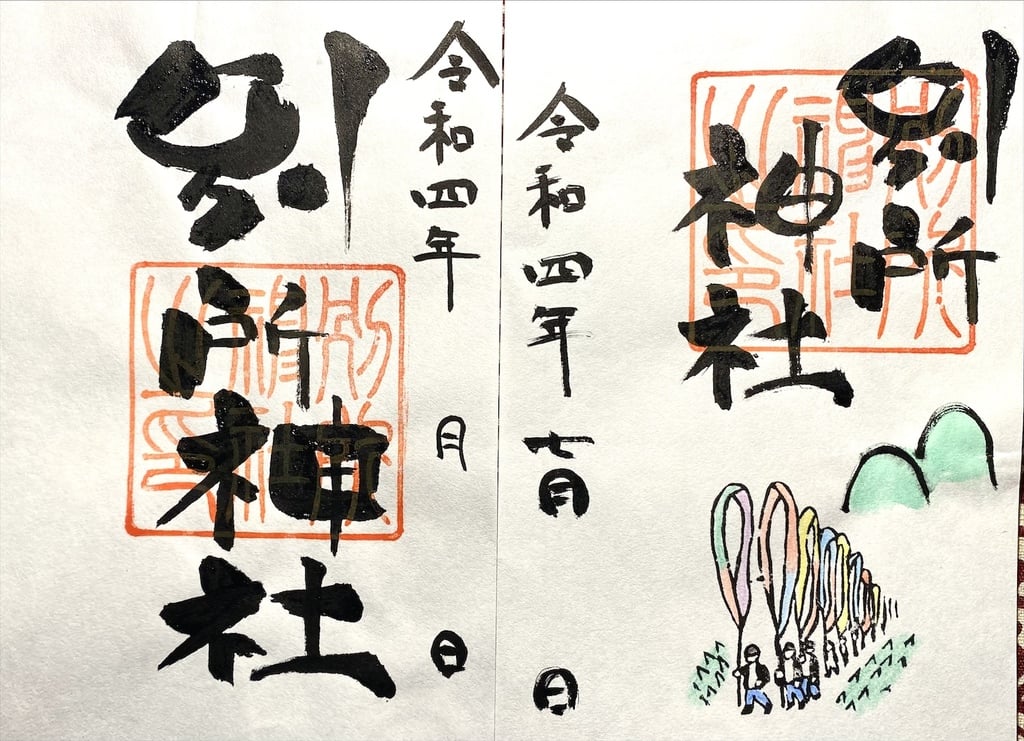 別所
神社
別所
神社
之印
令和四年 七月 日
令和四年 月 日
別所神社
別所
神社
之印